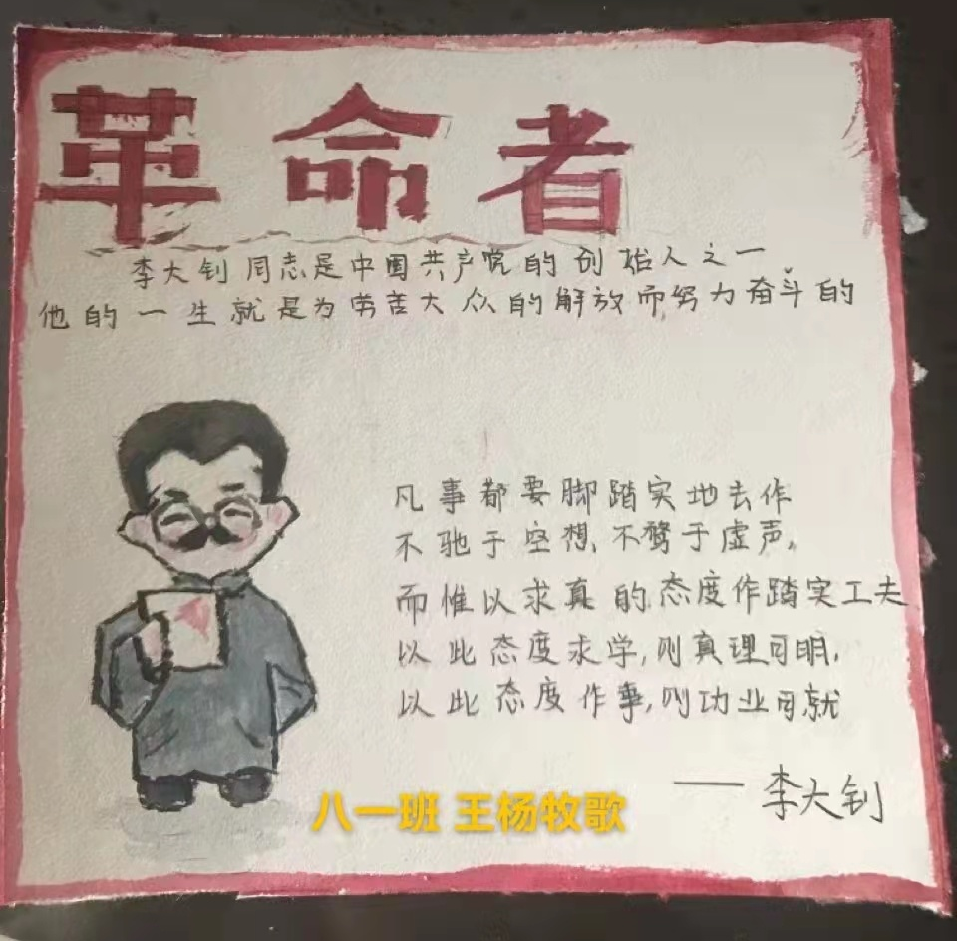 革命者
李大钊同志是中国共产党的创始人之一
他的一生就是为劳苦大众的解放而努力奋斗的
凡事都要脚踏实地去作
不驰于空想、不骛于虚声。
而惟以求真的态度作踏实工夫
以此态度求学,则真理可明,
以此态度作事,则功业可就
——李大钊
八一班 王杨牧歌